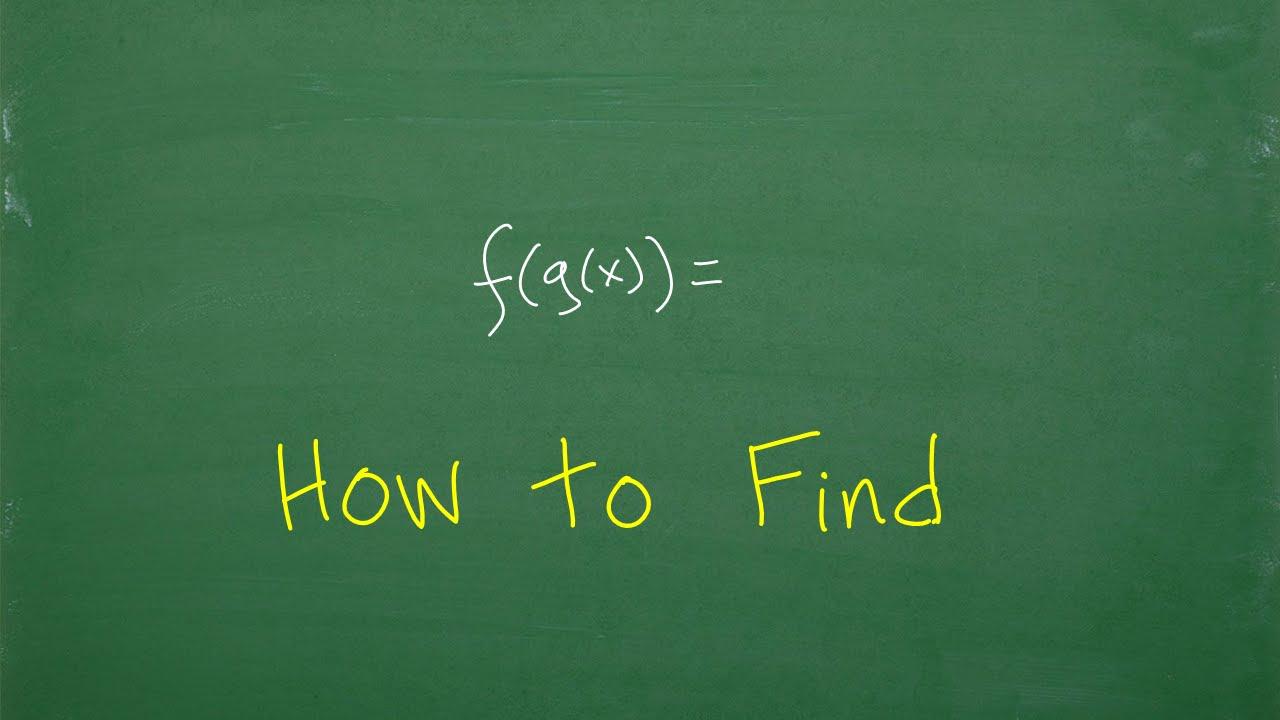 f(g(x)) =
How to Find